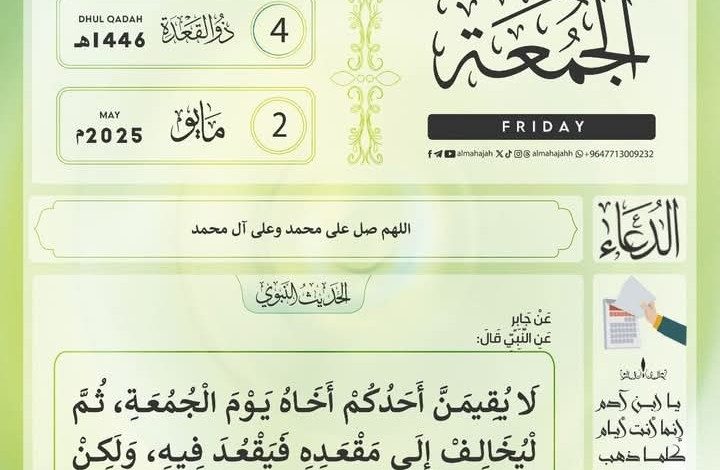 DHUL QADAH
1446هـ
ذُو القَعْدَة
4
MAY
2025م
مايو
2
الجُمُعَة
FRIDAY
almahajah almahajahh +9647713009232
الدُعَاء
اللهم صل على محمد وعلى آل محمد
الحَدِيثُ النَّبَوِي
عَنْ جَابِرٍ
عَنِ النَّبِيِّ قَالَ:
لَا يُقِيمَنَّ أَحَدُكُمْ أَخَاهُ يَوْمَ الْجُمُعَةِ، ثُمَّ
لْيُخَالِفْ إِلَى مَقْعَدِهِ فَيَقْعُدَ فِيهِ، وَلَكِنْ
يا ابن آدم
إنما أنت أيام
كلما ذهب